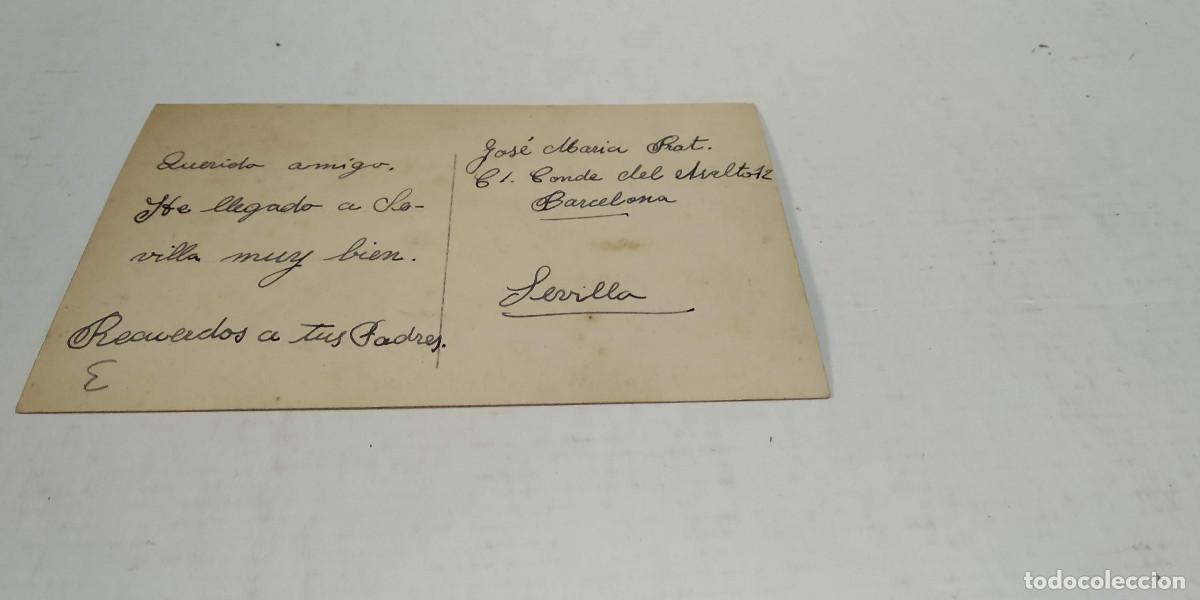 Querido amigo.
He llegado a Se-
villa muy bien.
Recuerdos a tus Padres.
E
José Maria Prat.
C/. Conde del Asalto 12
Barcelona
Sevilla
todocoleccion